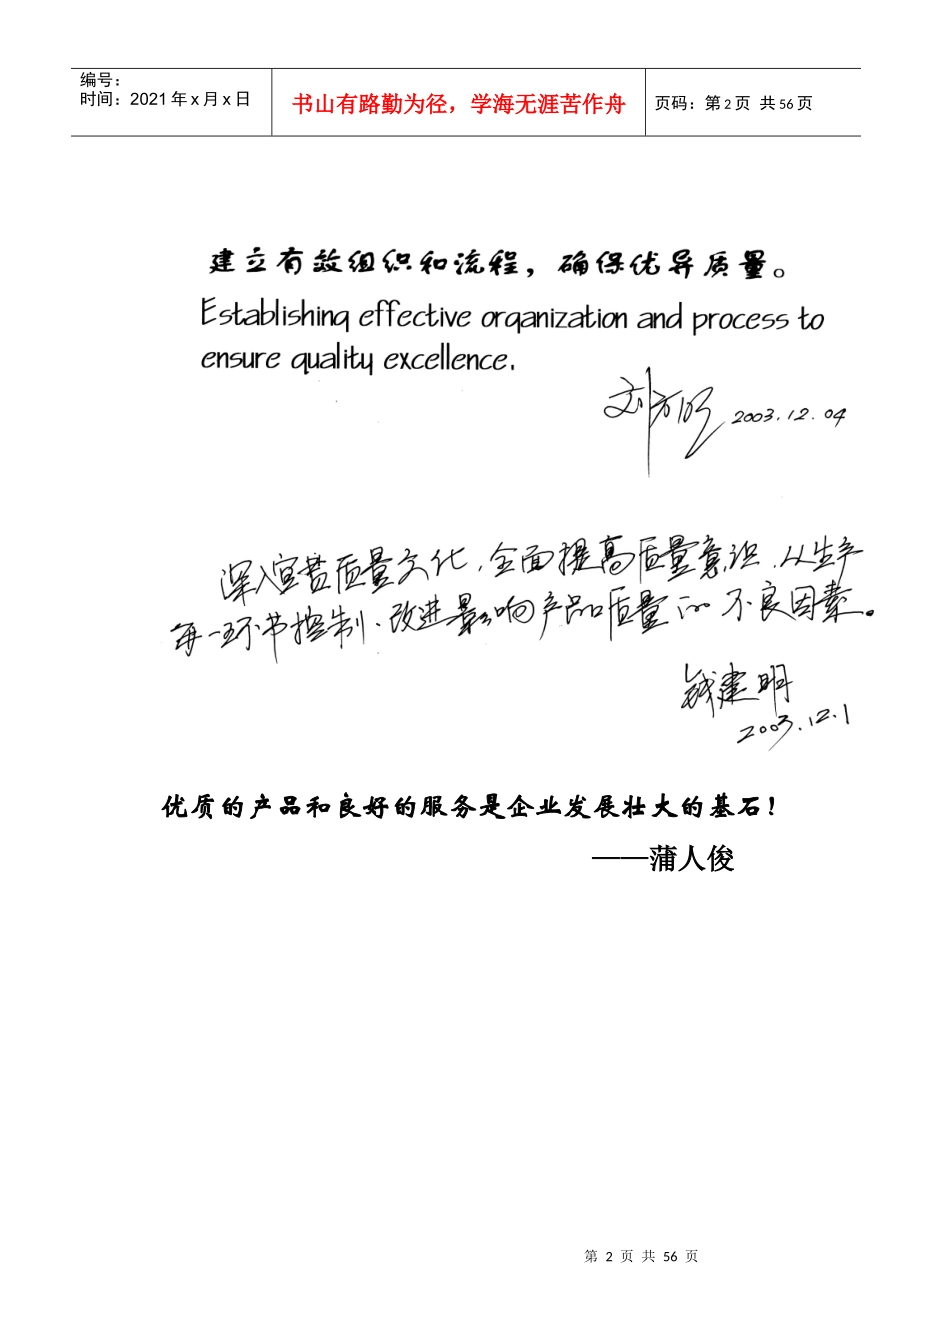 编号：
时间：2021年x月x日
书山有路勤为径，学海无涯苦作舟
页码：第2页 共56页
建立有效组织和流程，确保优异质量。
Establishing effective organization and process to
ensure quality excellence.
2003.12.04
深入宣贯质量文化、全面提高质量意识、从生产
每一环节控制、改进影响产品质量的不良因素。
钱建明
2003.12.1
优质的产品和良好的服务是企业发展壮大的基石！
——蒲人俊
第 2 页 共 56 页